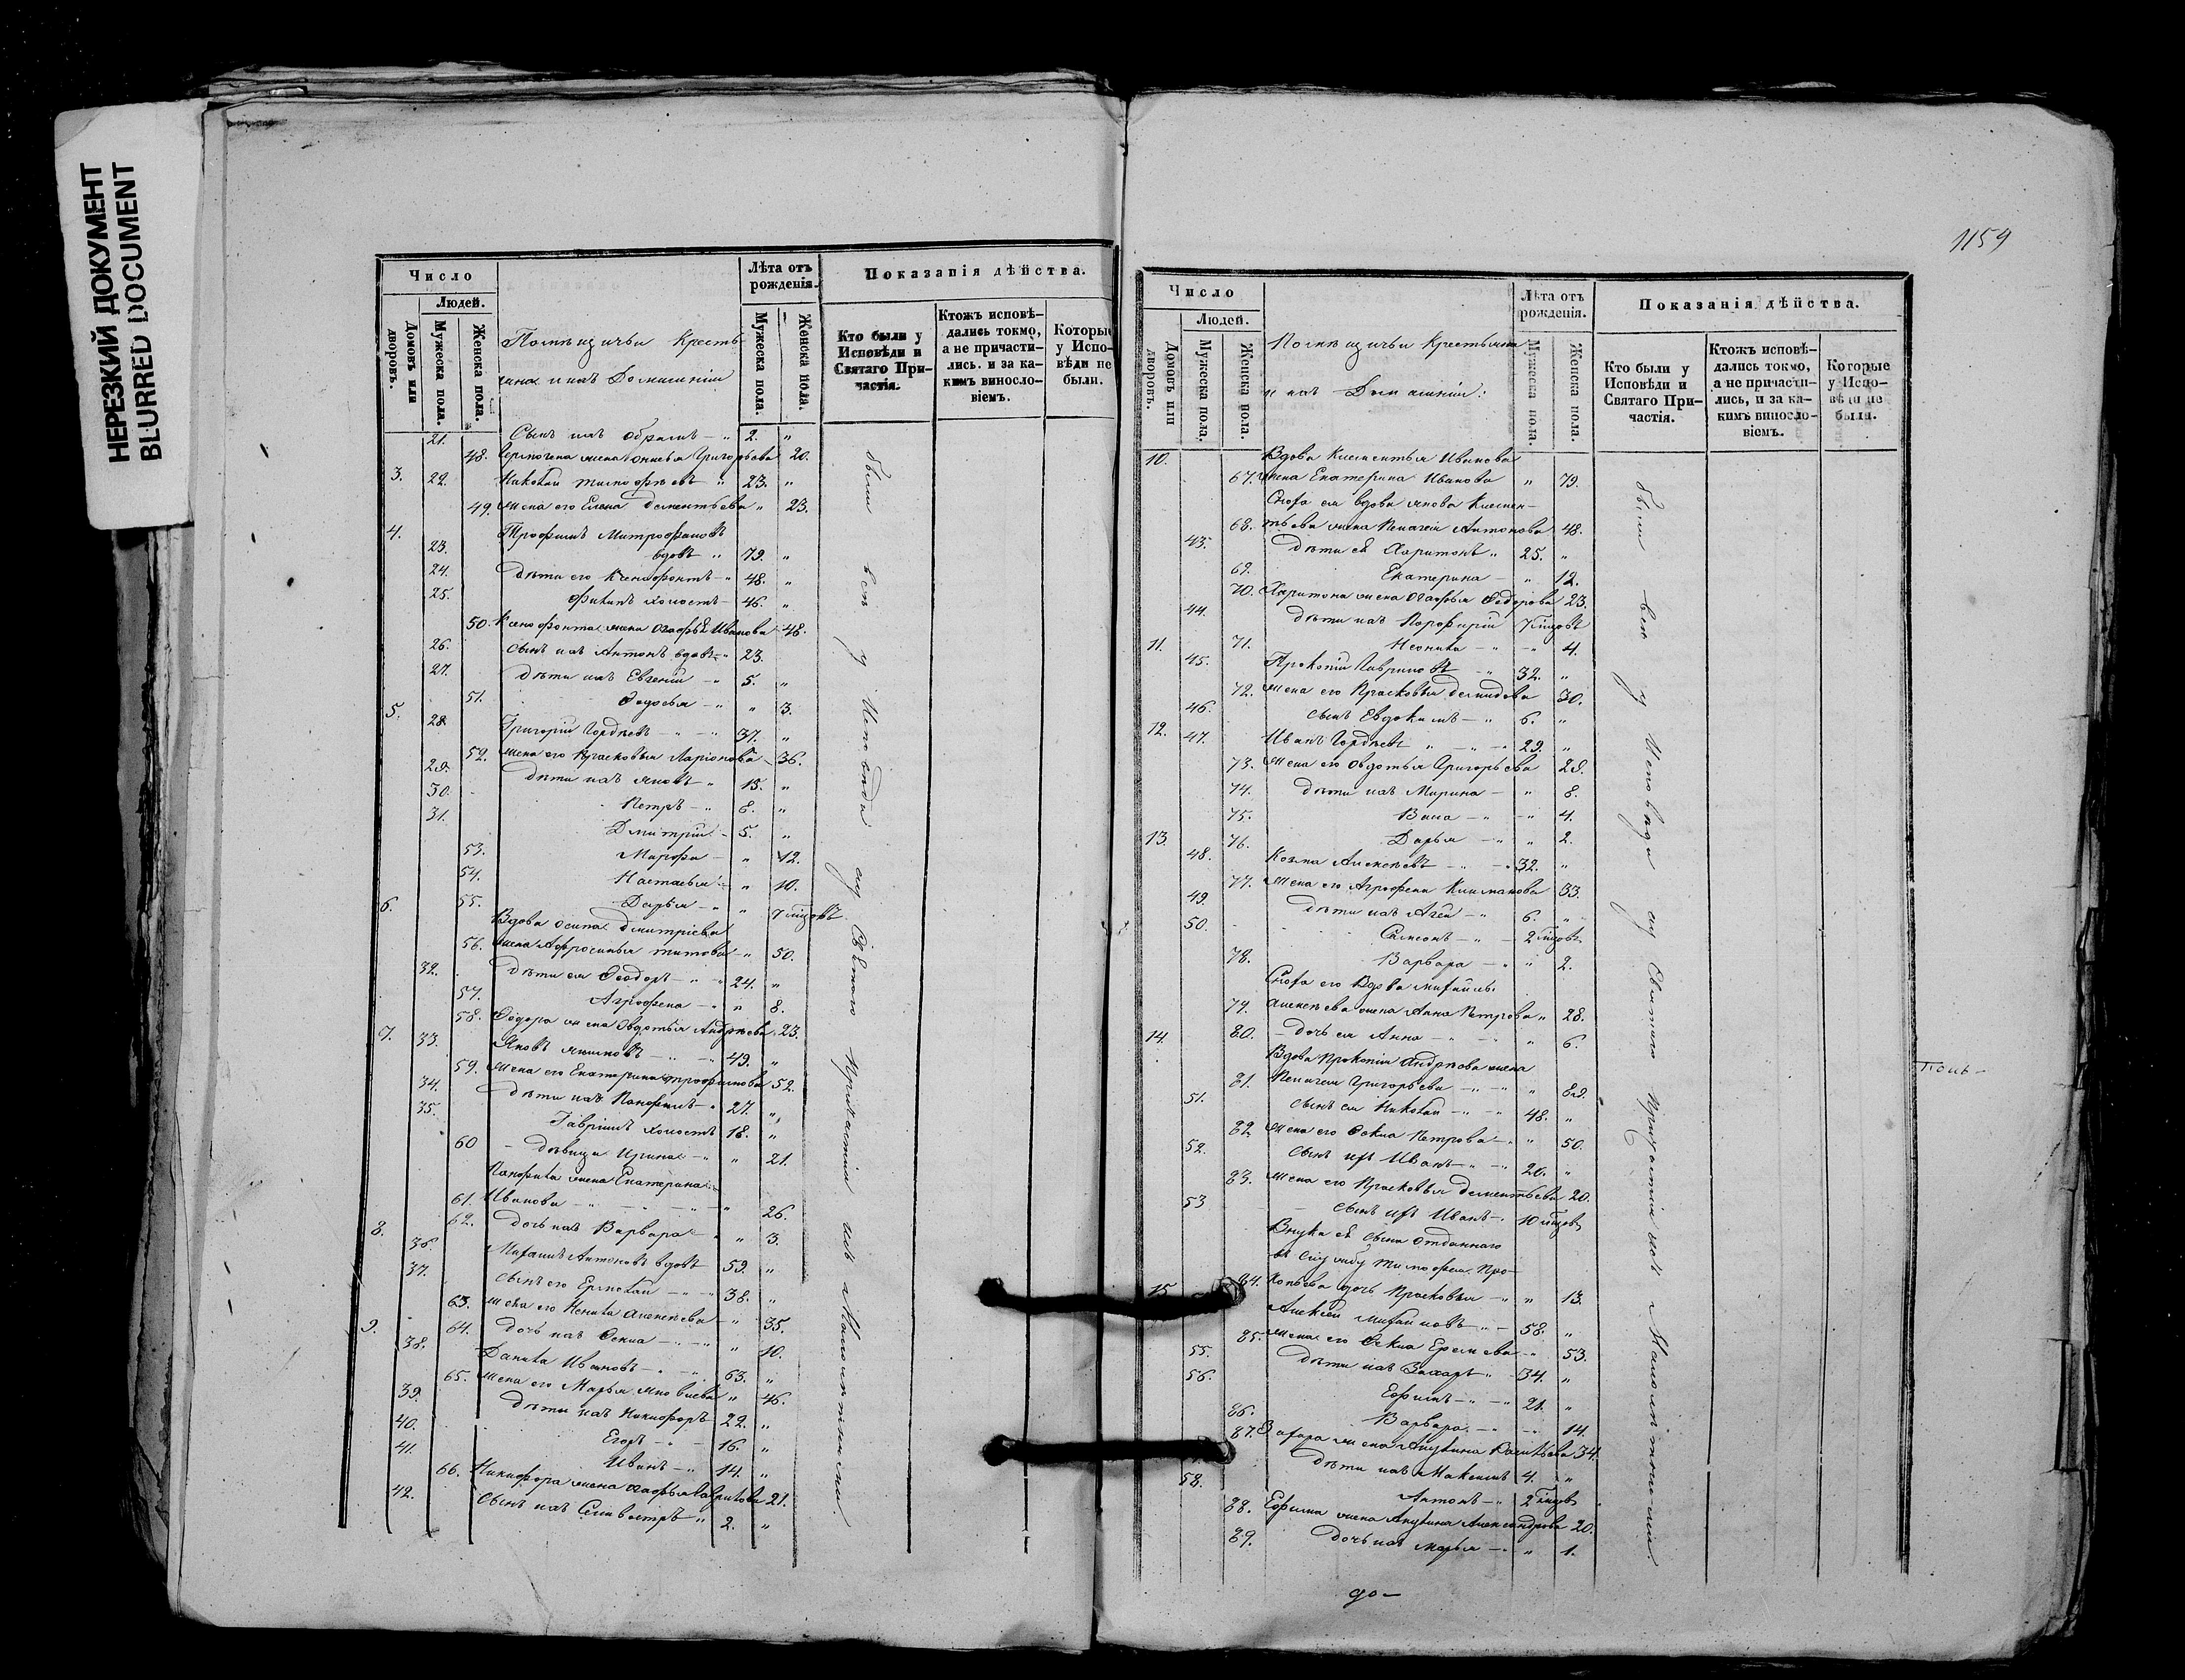 НЕРЕЗКИЙ ДОКУМЕНТ
BLURRED DOCUMENT
Число
Людей.
Домовъ или дворовъ.
Мужеска пола.
Женска пола.
Помѣщичьи Кресть
яна и ихъ Домашніи
Лѣта отъ рожденія.
Мужеска пола.
Женска пола.
Показанія дѣйства.
Кто были у Исповѣди и Святаго Причастія.
Ктожъ исповѣдались токмо, а не причастились. и за какимъ винословіемъ.
Которые у Исповѣди не были.
21. Сынъ ихъ 2. "
48. жена Григорьева 20.
3. 22. 23. "
49. жена его Елена Дементьева " 23.
4. Трофимъ Митрофановъ
23. вдовъ " 79. "
24. Дѣти его Ксенофонтъ " 48. "
25. холостъ 46. "
50. Ксенофонта жена Агафья Иванова 48.
26. сынъ ихъ Антонъ вдовъ " 23.
27. Дѣти ихъ Евгеній " 5. "
51. Федосья " " 3.
5. 28. Григорій Гордѣевъ 37. "
52. жена его Прасковья Ларіонова 36.
29. Дѣти ихъ Яковъ " 15. "
30. Петръ " 8. "
31. Дмитрій 5. "
53. Марфа " 12.
54. Настасья " 10.
55. Дарья " " 7 мѣсцовъ
6. Вдова Осипа Дмитріева
56. жена Афросинья Титова " 50.
32. Дѣти ея Ѳеодоръ 24. "
57. Агрофена " " 8.
58. Ѳедора жена Овдотья Андрѣева 23.
7. 33. Яковъ 49. "
59. жена его Екатерина Трофимова 52.
34. Дѣти ихъ Панфилъ 27. "
35. Гаврилъ холостъ 18. "
60 Дѣвица Ирина " " 21.
Панфила жена Екатерина
61. Иванова 26.
62. Дочь ихъ Варвара " 3.
8. 36. Михаилъ Антоновъ вдовъ 59. "
37. сынъ его Ермолай 38. "
63. жена его Ненила Алексѣева " 35.
64. Дочь ихъ Ѳекла " 10.
9. 38. Данила Ивановъ 63. "
65. жена его Марья Яковлева " 46.
39. Дѣти ихъ Никифоръ 22. "
40. Егоръ 16. "
41. Иванъ 14. "
66. Никифора жена Агафья Гаврилова 21.
42. Сынъ ихъ Селивестръ " 2. "
были всѣ у Исповѣди и у Святаго Причастія съ Малолѣтными
1159
Число
Людей.
Домовъ или дворовъ.
Мужеска пола.
Женска пола.
Помѣщичьи Крестьяна
и ихъ Домашніи:
Лѣта отъ рожденія.
Мужеска пола.
Женска пола.
Показанія дѣйства.
Кто были у Исповѣди и Святаго Причастія.
Ктожъ исповѣдались токмо, а не причастились, и за какимъ винословіемъ.
Которые у Исповѣди не были.
10. Вдова Клементья Иванова
67. жена Екатерина Иванова " 79.
Сноха ея вдова Якова Клемен-
68. тьева жена Пелагея Антонова 48.
43. Дѣти ея Харитонъ " 25. "
69. Екатерина " 12.
70. Харитона жена Агафья Федорова 23.
44. Дѣти ихъ Порфирій 7 мѣсцовъ
71. Неонила 4.
11. 45. Прокопій Гавриловъ 32. "
72. жена его Прасковья Демидова 30.
46. сынъ Евдокимъ 6. "
12. 47. Иванъ Гордѣевъ 29. "
73. жена его Овдотья Григорьева 28.
74. Дѣти ихъ Марина " 8.
75. 4.
76. Дарья " 2.
13. 48. Козма Алексѣевъ 32. "
77. жена его Агрофена 33.
49. Дѣти ихъ 6. "
50. Самсонъ 2 мѣсцовъ
78. Варвара " 2.
Сноха его Вдова Михайлы
79. Алексѣева жена Анна Петрова " 28.
80. дочь ея Анна " 6.
14. Вдова Прокопія Андрѣева жена
81. Пелагея Григорьева " 82.
51. сынъ ея Николай 48. "
82 жена его Ѳекла Петрова " 50.
52. Сынъ ихъ Иванъ 20. "
83. жена его Прасковья Дементьева 20.
53 сынъ ихъ Иванъ 10 мѣсцовъ
Внука ея сына отданнаго
въ службу Тимофея Про-
84. копьева дочь Прасковья " 13.
15 Алексѣй Михайловъ 58. "
85. жена его Ѳекла Еремѣева 53.
55. Дѣти ихъ Захаръ 34. "
56. Ефимъ 21. "
86. Варвара 14.
87. Захара жена Акулина 34.
Дѣти ихъ Максимъ 4. "
58. Антонъ 2 мѣсцовъ
88. Ефима жена Акулина Александрова 20.
89. дочь ихъ Марья " 1.
были всѣ у Исповѣди и у Святаго Причастія съ Малолѣтными
до-